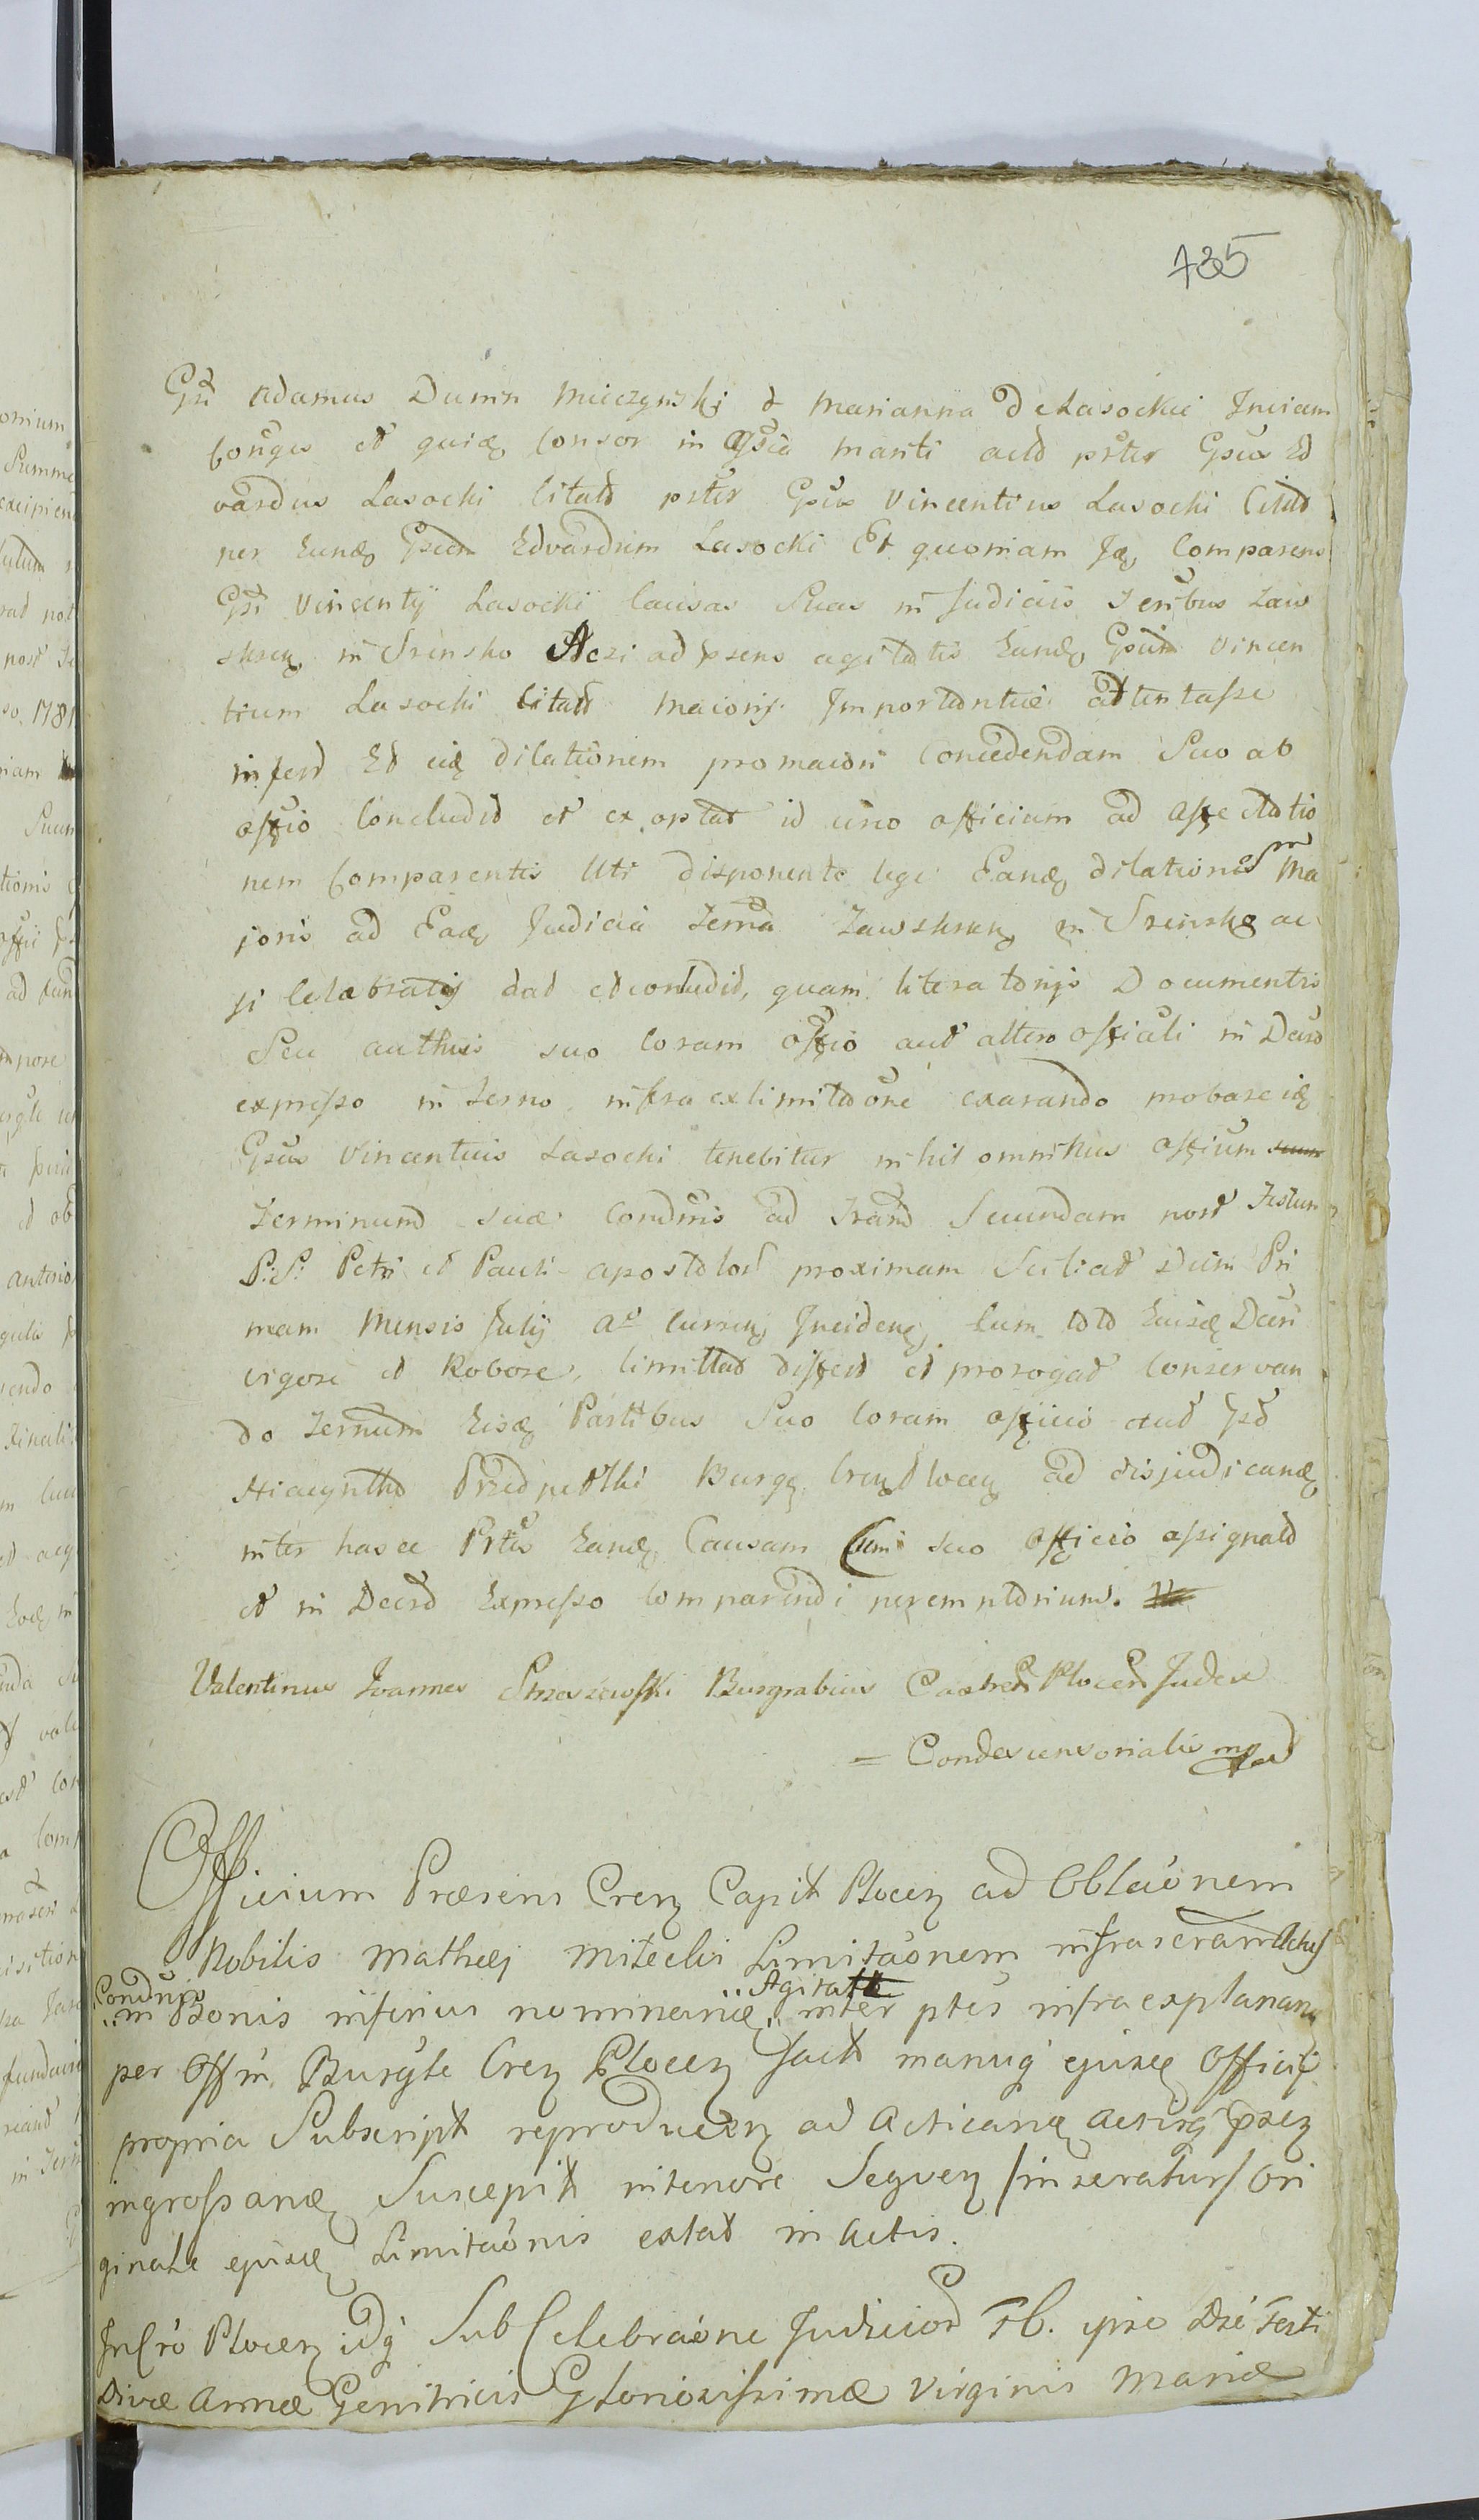 735
Gsi Adamus Dunin Mieczynski & Marianna de Lasockie Inviam
Conges et quidę Consor in Assia mariti actð pster Gsus Ed
vardus Lasocki Citatð pster Gsus Vincentius Lasocki Citatð
per Eundę Gsum Edvardum Lasocki Et quoniam Idę Comparens
Gsi Vincentÿ Lasocki Causas Suas in Judiciis Teribus Zaw
skren in Srensko Acsi ad psens agitatis Eundę Gsum Vincen
tium Lasocki Citatð maioris Importantiæ attentasse
infert Et eię dilationem pro maiori Concedendam Suo ab
offio Concludit et exoptat id circo officium ad affectatio
nem Comparentis Uti disponente lege Eandę dilationem Ma
joris ad Eadę Judicia Terrã Zawskren in Srensko ac
si Celebratis dat et concludit, quam literatorijs Documentis
Seu authcis suo coram offio aut altero officiali in Decrð
expresso in Terno infra ex limitaone exarando probare ię
Gsus Vincentius Lasocki tenebitur nihil omninus offium
Terminum suæ Condnis ad Feriam Secundam post Festum
S: S: Petri et Pauli apostolor proximam Sciliat Diem Pri
mam Mensis Julÿ Aº Curren Inciden, Cum toto Euisdę Decri
vigore et Robore, limittat differt et prorogat Conservan
do Ternum Eisdę Partibus Suo Coram officio aut Gso
Hiacyntho Przedpełski Burgę Cren Plocen ad disjudicandę
inter hasce Ptes Eandę Causam Cum suo officio assignatð
et in Decrð Expresso Comparendi peremptorium.
Valentinus Joannes Straszewski Burgrabius Castren Plocen Judex
= Condescensorialis mpa
Officium Præsens Cren Capit Plocen ad Oblaonem
Nobilis Mathæi Mitecki Limitaonem infrascram Actus
Condnis
.. in Bonis inferius nominandę .. Agitata inter ptes infra explanan
per Offm Burgle Cren Plocen fact manuq ejusdę Officij
propria Subscript reproducen ad Acticandę Actisq psen
ingrossandę Suscepit in tenore Sequen /inseratur/ Ori
ginale ejusdę Limitaonis extat in Actis.
In Cro Plocen idq Sub Celebraone Judicior Fl. ipso Die Festi
Divæ Annæ Genitricis Gloriosissimæ Virginis Mariæ